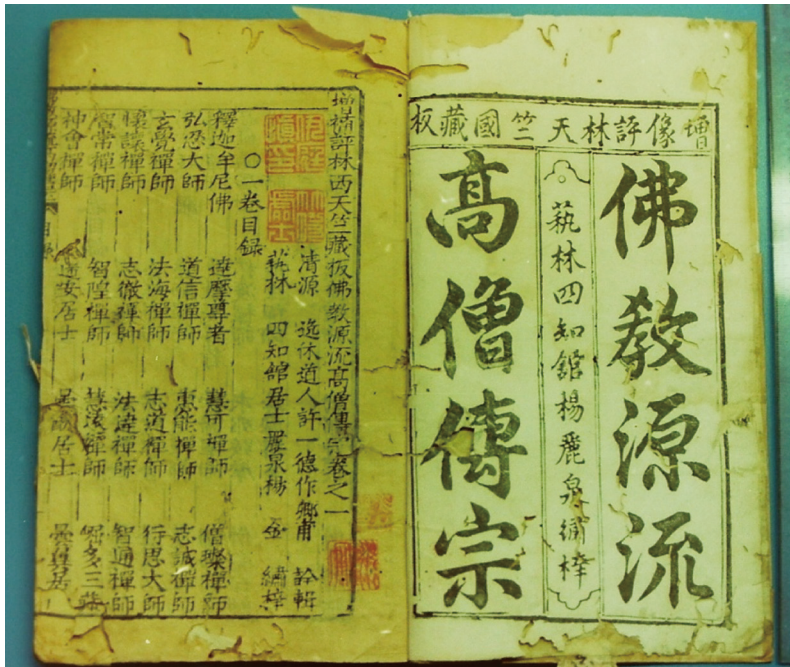 增像評林天竺國藏板
佛教源流
藝林四知舘楊麗泉綉梓
高僧傳宗
增補評林西天竺藏板佛教源流高僧傳宗卷之一
清源 逸休道人許一德作鄉甫 輯
藝林 四知舘居士麗泉楊 金 繡梓
〇一卷目録
釋迦牟尼佛 達摩尊者 慧可禪師 僧璨禪師
弘忍大師 道信禪師 惠能禪師 志誠禪師
玄覺禪師 法海禪師 志道禪師 行思大師
懷讓禪師 志徹禪師 法達禪師 智通禪師
智常禪師 智隍禪師 禪師 多三藏
神會禪師 居士 居士